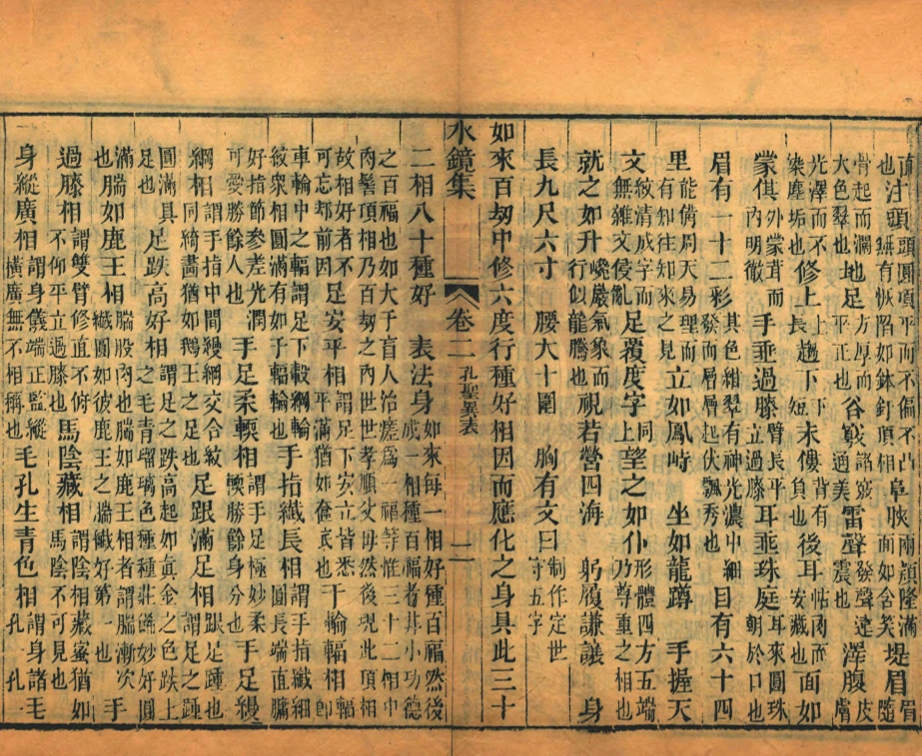 頭圓頂平而不偏凸 堤眉
地足方厚而平正也 谷竅 雷聲發聲遠震也 澤腹皮膚
光澤而不染塵垢也 修上上長 趨下下短 末僂背有負也 後耳耳帖肉而安藏也 面如
蒙倛其外蒙茸而內明徹 手垂過膝臂長平立過膝 耳垂珠庭耳來圓珠朝於口也
眉有一十二彩其色紺翠有神光濃中細發而層層起伏飄秀也 目有六十四
里能倚周天易理而有知往知來之見 立如鳳峙 坐如龍蹲 手握天
文紋清成字而無雜文侵亂 足履度字同上 望之如仆形體四方五端乃尊重之相也
就之如升巉巖氣象而行似龍騰也 視若營四海 躬履謙讓 身
長九尺六寸 腰大十圍 胸有文曰制作定世守五字
如來百刼中修六度行種好相因而應化之身具此三十
水鏡集 卷二 孔聖異表 二
二相八十種好 表法身如來每一相好種百福然後成一相一種百福者其小功德
之百福也如大千盲人治瘥為一福等惟三十二相中肉髻頂相乃百刼之內世世孝順父母然後現此頂相
故相好者不可忘却前因 足安平相謂足下安立皆悉平滿猶如奩底也 千輻輪相輻即
車輪中之輻謂足下轂網輪紋衆相圓滿有如千輻輪也 手指纖長相謂手指纖細圓長端直牗
好指節參差光潤可愛勝餘人也 手足柔輭相謂手足極妙柔輭勝餘身分也 手足縵
網相謂手指中間縵網交合紋同綺畵猶如鵝王之足也 足跟滿足相跟足踵也謂足之踵
圓滿具足也 足趺高好相謂足之趺高起如眞金之色趺上之毛青瑠璃色種種莊飾妙好圓
滿也 腨如鹿王相腨股肉也腨如鹿王相者謂腨漸次纖圓如彼鹿王之腨纖好第一 手
過膝相謂雙臂修直不俯不仰平立過膝也 馬陰藏相謂陰相藏蜜猶如馬陰不可見也
身縱廣相謂身儀端正監縱橫廣無不相稱也 毛孔生青色相謂身諸毛孔一孔一